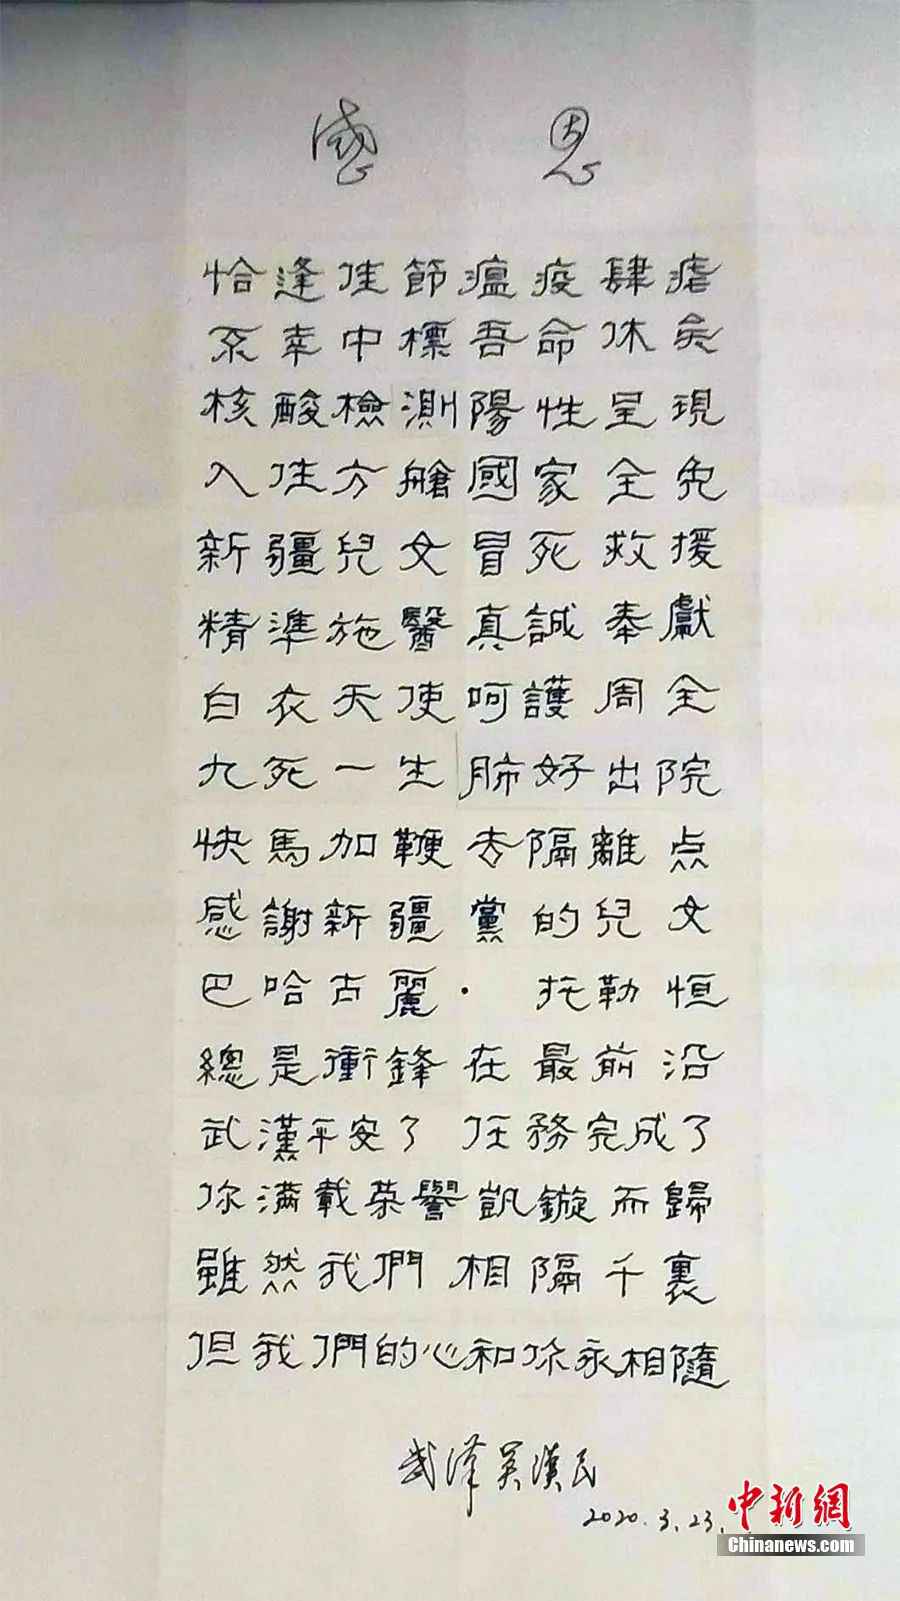 感恩
恰逢佳節瘟疫肆虐
不幸中標吾命休矣
核酸檢測陽性呈現
入住方艙國家全免
新疆兒女冒死救援
精準施醫真誠奉獻
白衣天使呵護周全
九死一生肺好出院
快馬加鞭去隔離点
感謝新疆黨的兒女
巴哈古麗·托勒恒
總是衝鋒在最前沿
武漢平安了任務完成了
你满載荣譽凱鏇而歸
雖然我們相隔千裏
但我們的心和你永相隨
武漢吴漢民
2020.3.23.
中新網
Chinanews.com